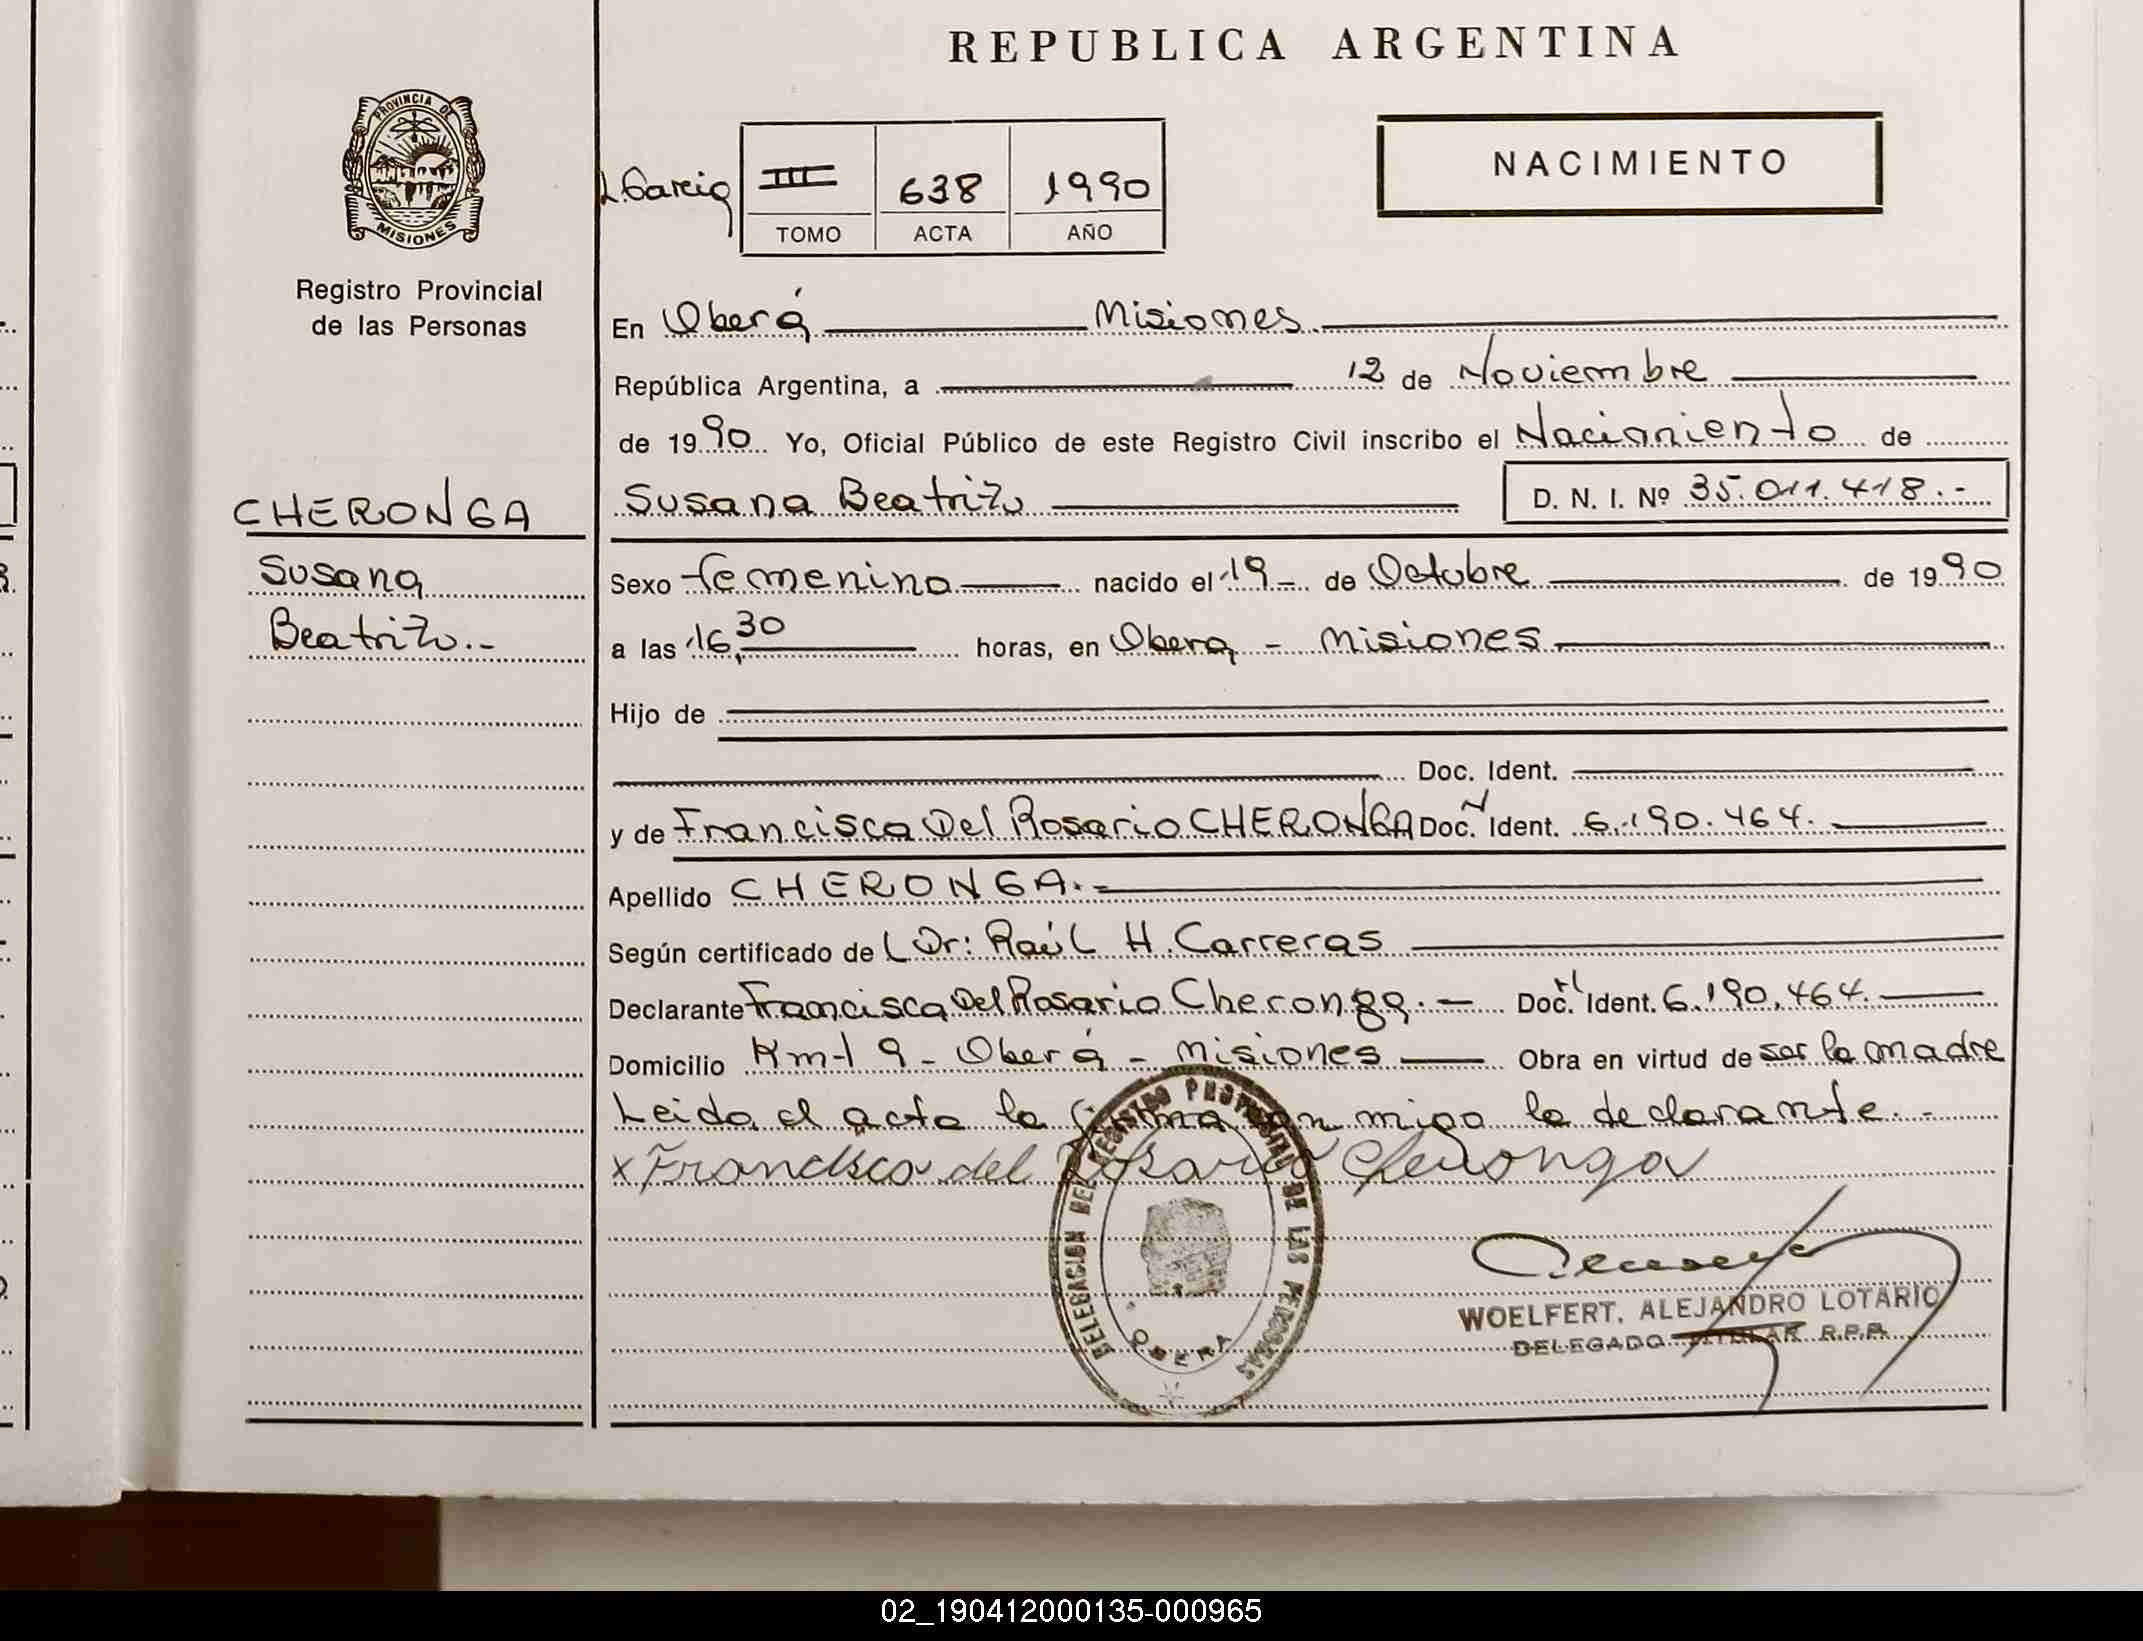 REPUBLICA ARGENTINA
PROVINCIA DE
MISIONES
Registro Provincial
de las Personas
NACIMIENTO
L. Garcia
III 638 1990
TOMO ACTA AÑO
En Oberá Misiones
República Argentina, a 12 de Noviembre
de 1990 Yo, Oficial Público de este Registro Civil inscribo el Nacimiento de
CHERONGA
Susana
Beatriz.-
Susana Beatriz D. N. I. Nº 35.011.418.-
Sexo femenino nacido el 19- de Octubre de 1990
a las 16,30 horas, en Obera - Misiones
Hijo de
Doc. Ident.
y de Francisca Del Rosario CHERONGA Doc. N Ident. 6.190.464.
Apellido CHERONGA.-
Según certificado de l Dr: Raúl H. Carreras
Declarante Francisca Del Rosario Cheronga.- Doc. N Ident. 6.190.464.
Domicilio Km-1 9- Oberá - Misiones Obra en virtud de ser la madre
Leida el acta la firma con migo la declarante.-
x Francisca del Rosario Cheronga
DELEGACION DEL REGISTRO PROVINCIAL DE LAS PERSONAS
OBERA
WOELFERT, ALEJANDRO LOTARIO
DELEGADO TITULAR R.P.P.
02_190412000135-000965